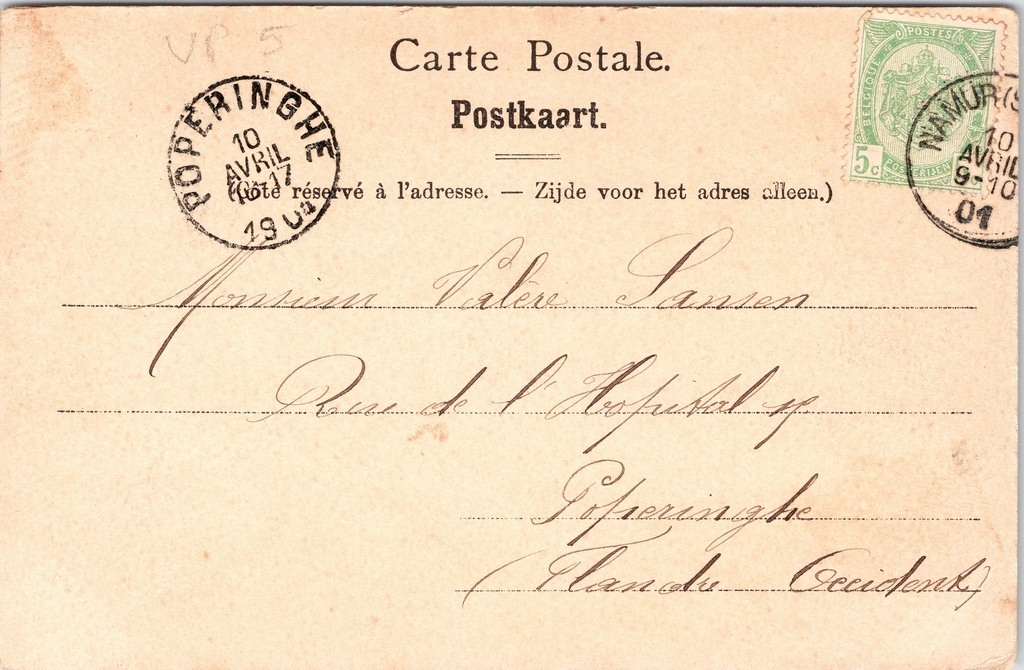 VP 5
Carte Postale.
Postkaart.
(Côté réservé à l'adresse. — Zijde voor het adres alleen.)
POPERINGHE
10
AVRIL
16-17
1901
POSTES
BELGIQUE BELGIË
5c
POSTERIJEN
NAMUR (S
10
AVRIL
9-10
01
Monsieur Valère Sansen
Rue de l'Hopital
Poperinghe
(Flandre Occident)